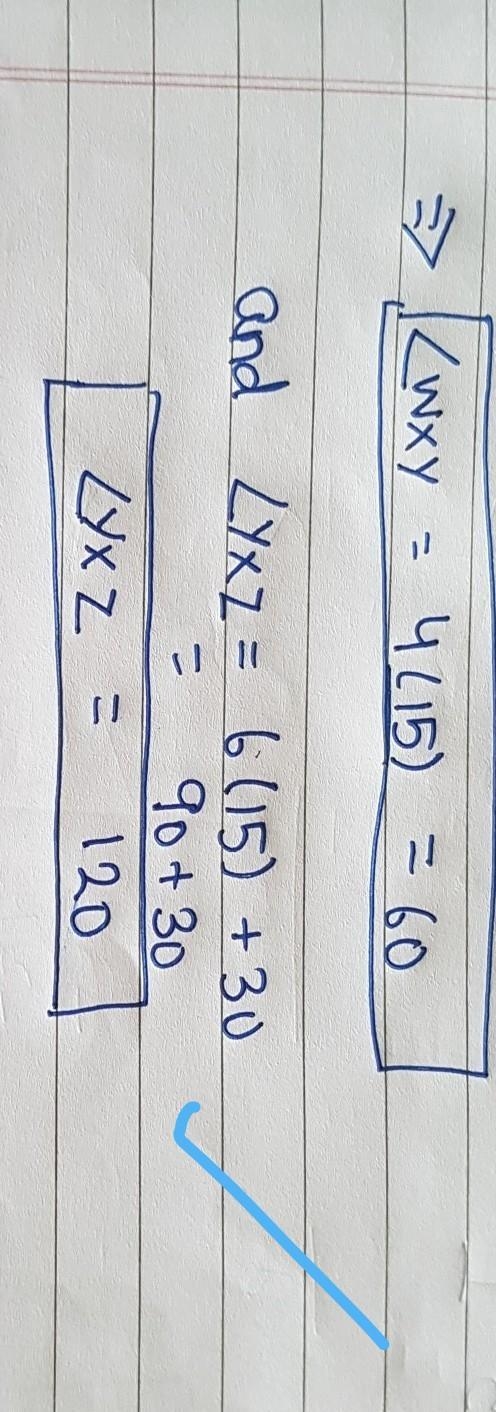 ⇒ ∠WXY = 4(15) = 60
and ∠YXZ = 6(15) + 30
= 90 + 30
∠YXZ = 120